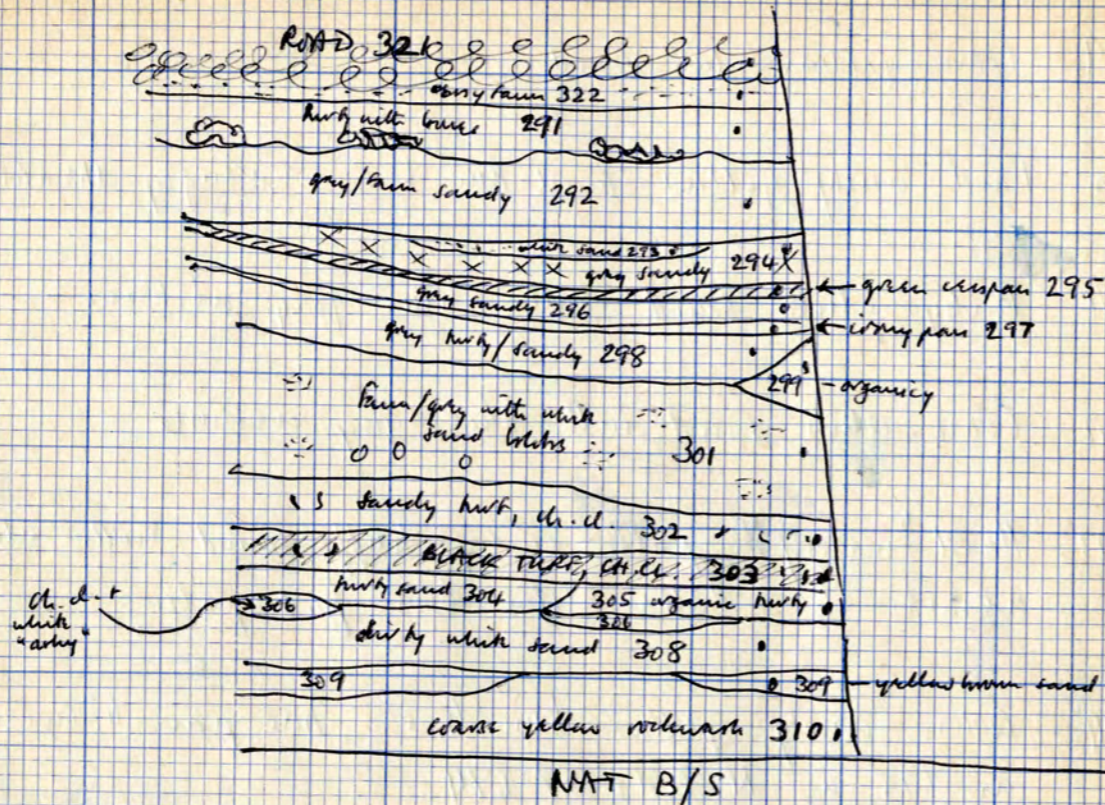 ROAD 321
grey fawn 322
turfy with 291
grey/fawn sandy 292
white sand 293
grey sandy 294
green ironpan 295
grey sandy 296
irony pan 297
grey turfy/sandy 298
299 organicy
Fawn/grey with white
sand blobs
301
sandy turf, ch. cl. 302
BLACK TURF, CH. CL. 303
turfy sand 304
305 organic turfy
306
306
ch. cl. +
white
"ashy"
dirty white sand 308
309
309 yellow brown sand
coarse yellow rockwash 310
NAT B/S